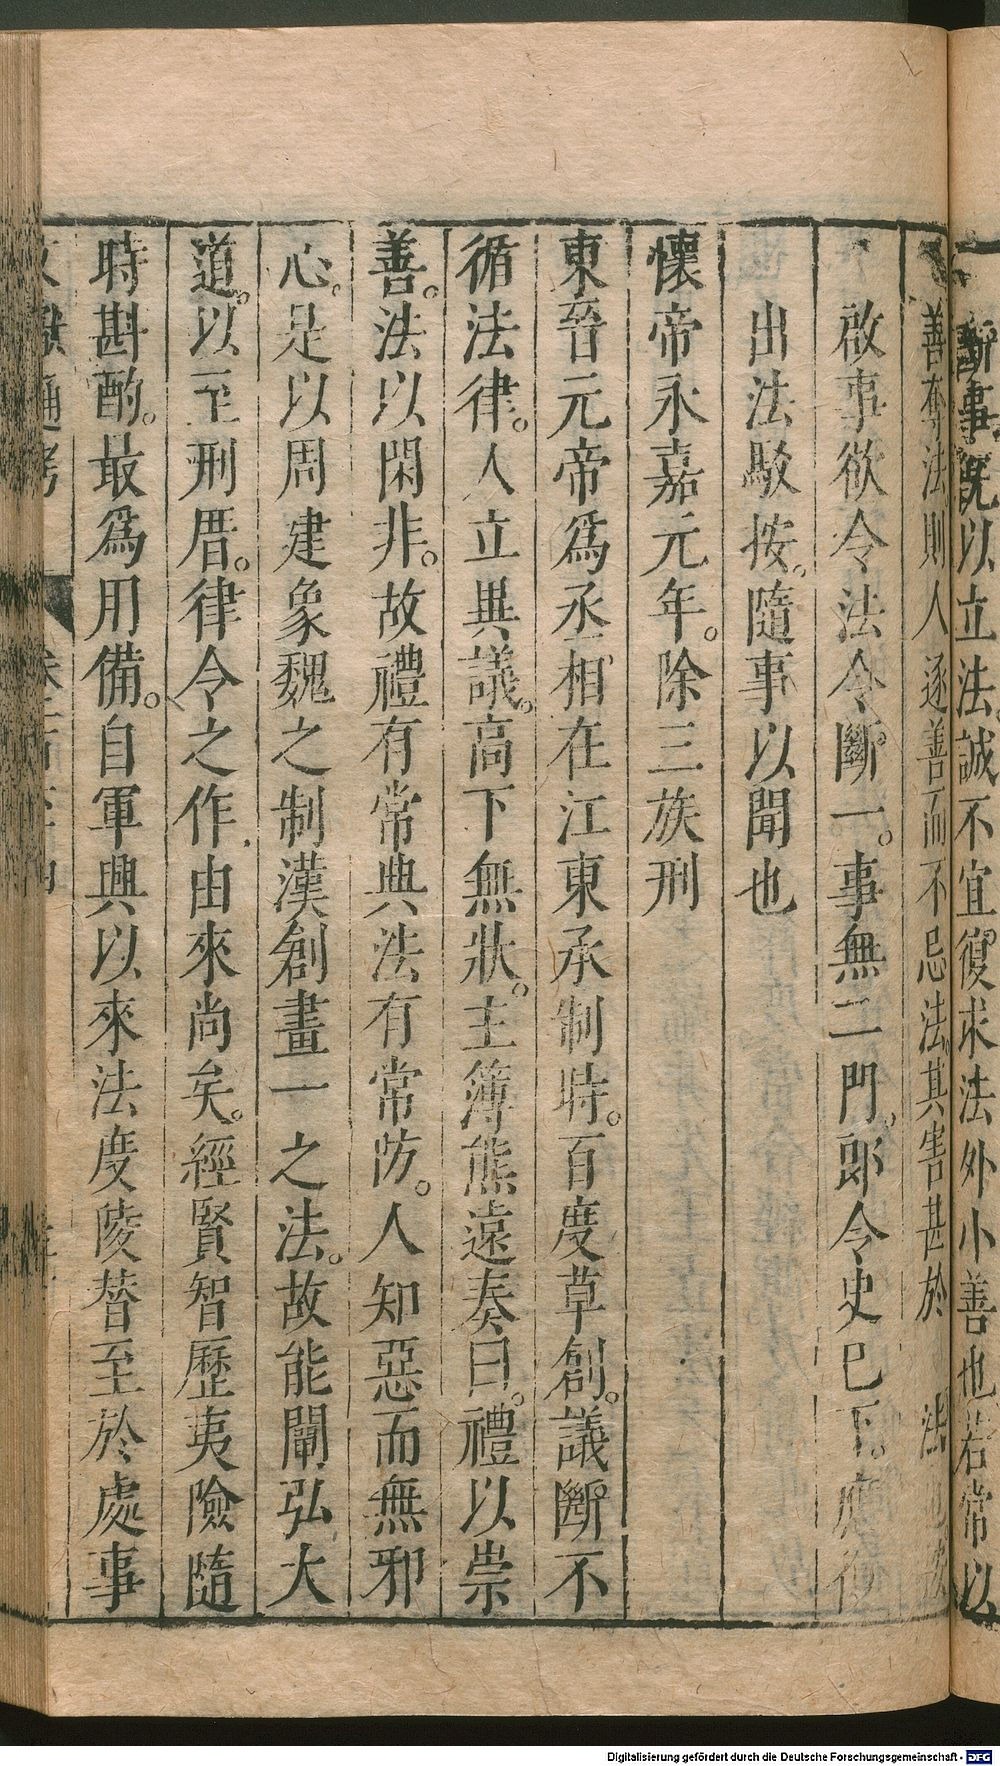 斷事旣以立法誠不宜復求法外小善也若常以
善奪法則人逐善而不忌法其害甚於
啟事欲令法令斷一事無二門郎令史已下應復
出法駁按隨事以聞也
懷帝永嘉元年除三族刑
東晉元帝爲丞相在江東承制時百度草創議斷不
循法律人立異議高下無狀主簿熊遠奏曰禮以崇
善法以閑非故禮有常典法有常防人知惡而無邪
心是以周建象魏之制漢創畫一之法故能闡弘大
道以至刑厝律令之作由來尚矣經賢智歷夷險隨
時斟酌最爲用備自軍興以來法度陵替至於處事
通考
Digitalisierung gefördert durch die Deutsche Forschungsgemeinschaft - DFG